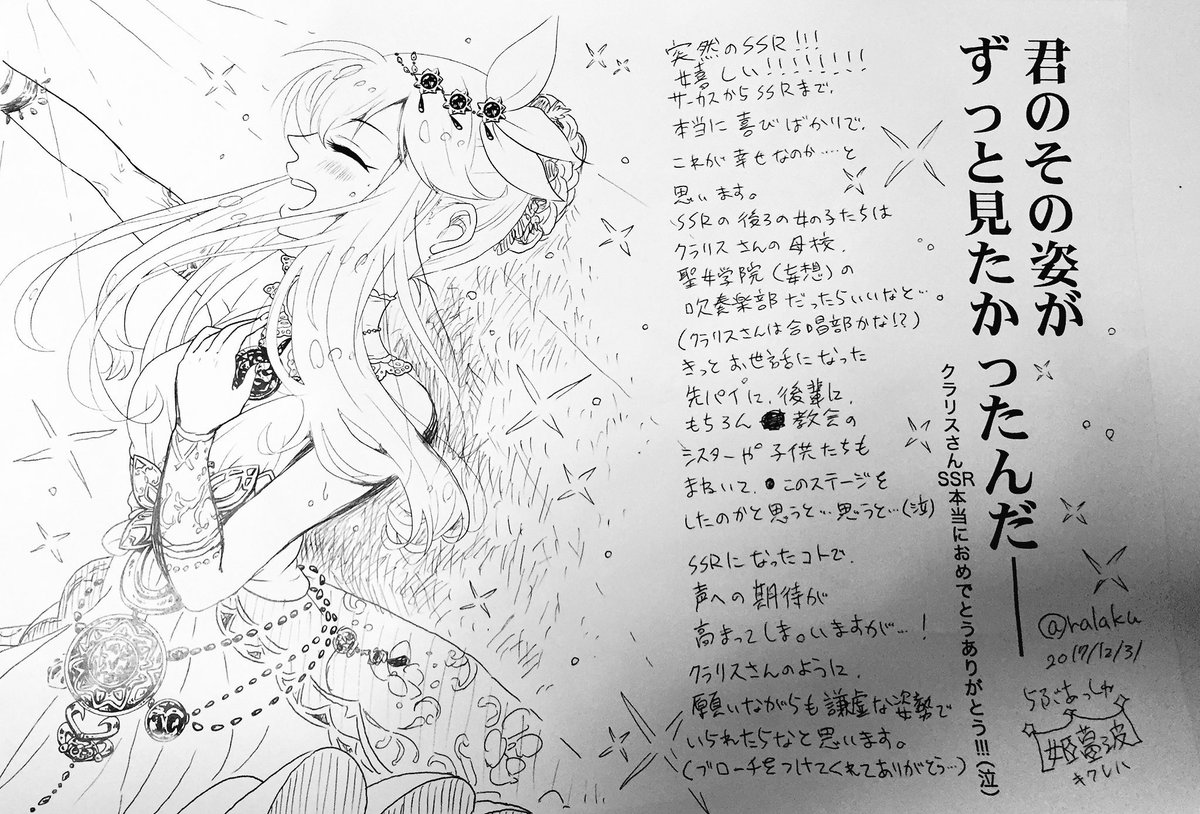 君のその姿が
ずっと見たかったんだ――
クラリスさんSSR本当におめでとうありがとう!!!(泣)
突然のSSR!!!
嬉しい!!!!!!!!
サーカスからSSRまで、
本当に喜びばかりで、
これが幸せなのか……と
思います。
SSRの後ろの女の子たちは
クラリスさんの母校、
聖女学院(妄想)の
吹奏楽部だったらいいなと…。
(クラリスさんは合唱部かな!?)
きっとお世話になった
先パイに、後輩に、
もちろん教会の
シスターや子供たちも
まねいて、このステージを
したのかと思うと…思うと…(泣)
SSRになったコトで、
声への期待が
高まってしまいますが…!
クラリスさんのように、
願いながらも謙虚な姿勢で
いられたらなと思います。
(ブローチをつけてくれてありがとう…)
@ralaku
2017/12/31